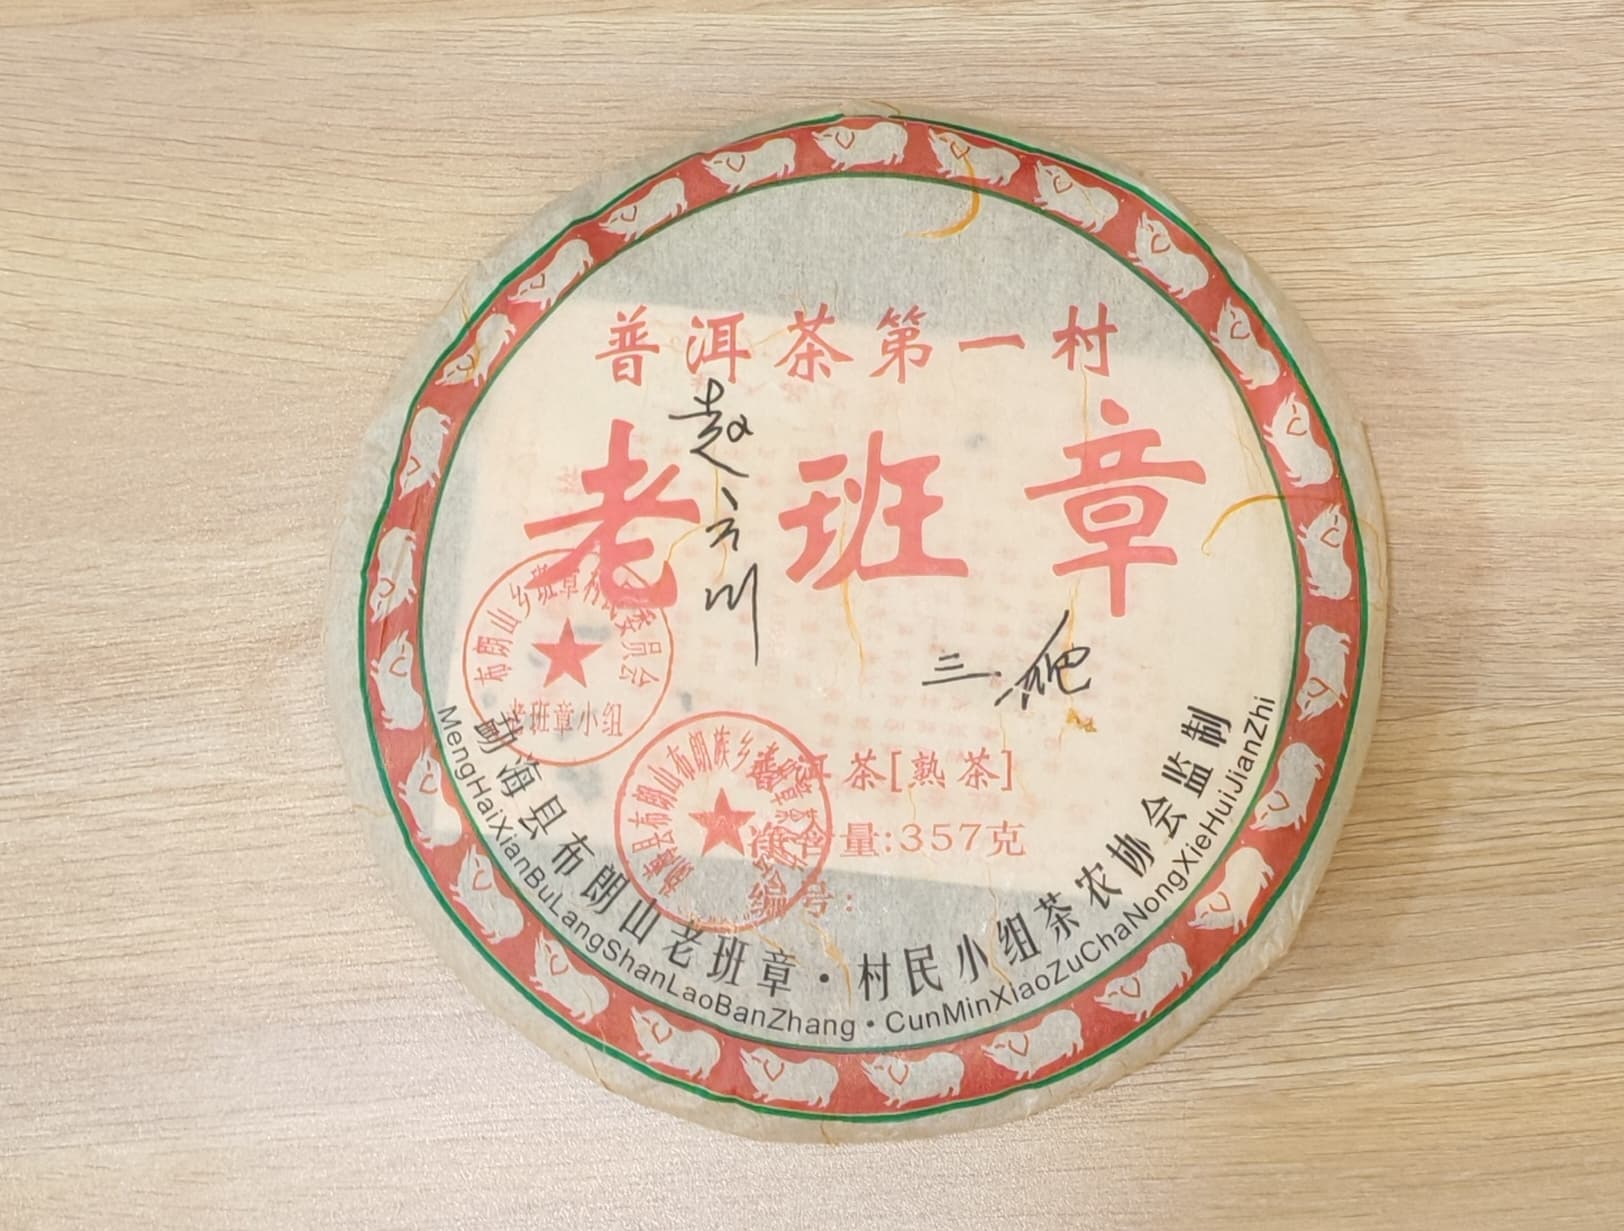 普洱茶第一村
老班章
赵
三爬
布朗山乡班章村民委员会
老班章小组
普洱茶[熟茶]
净含量:357克
编号:
勐海县布朗山老班章·村民小组茶农协会监制
MengHaiXianBuLangShanLaoBanZhang·CunMinXiaoZuChaNongXieHuiJianZhi